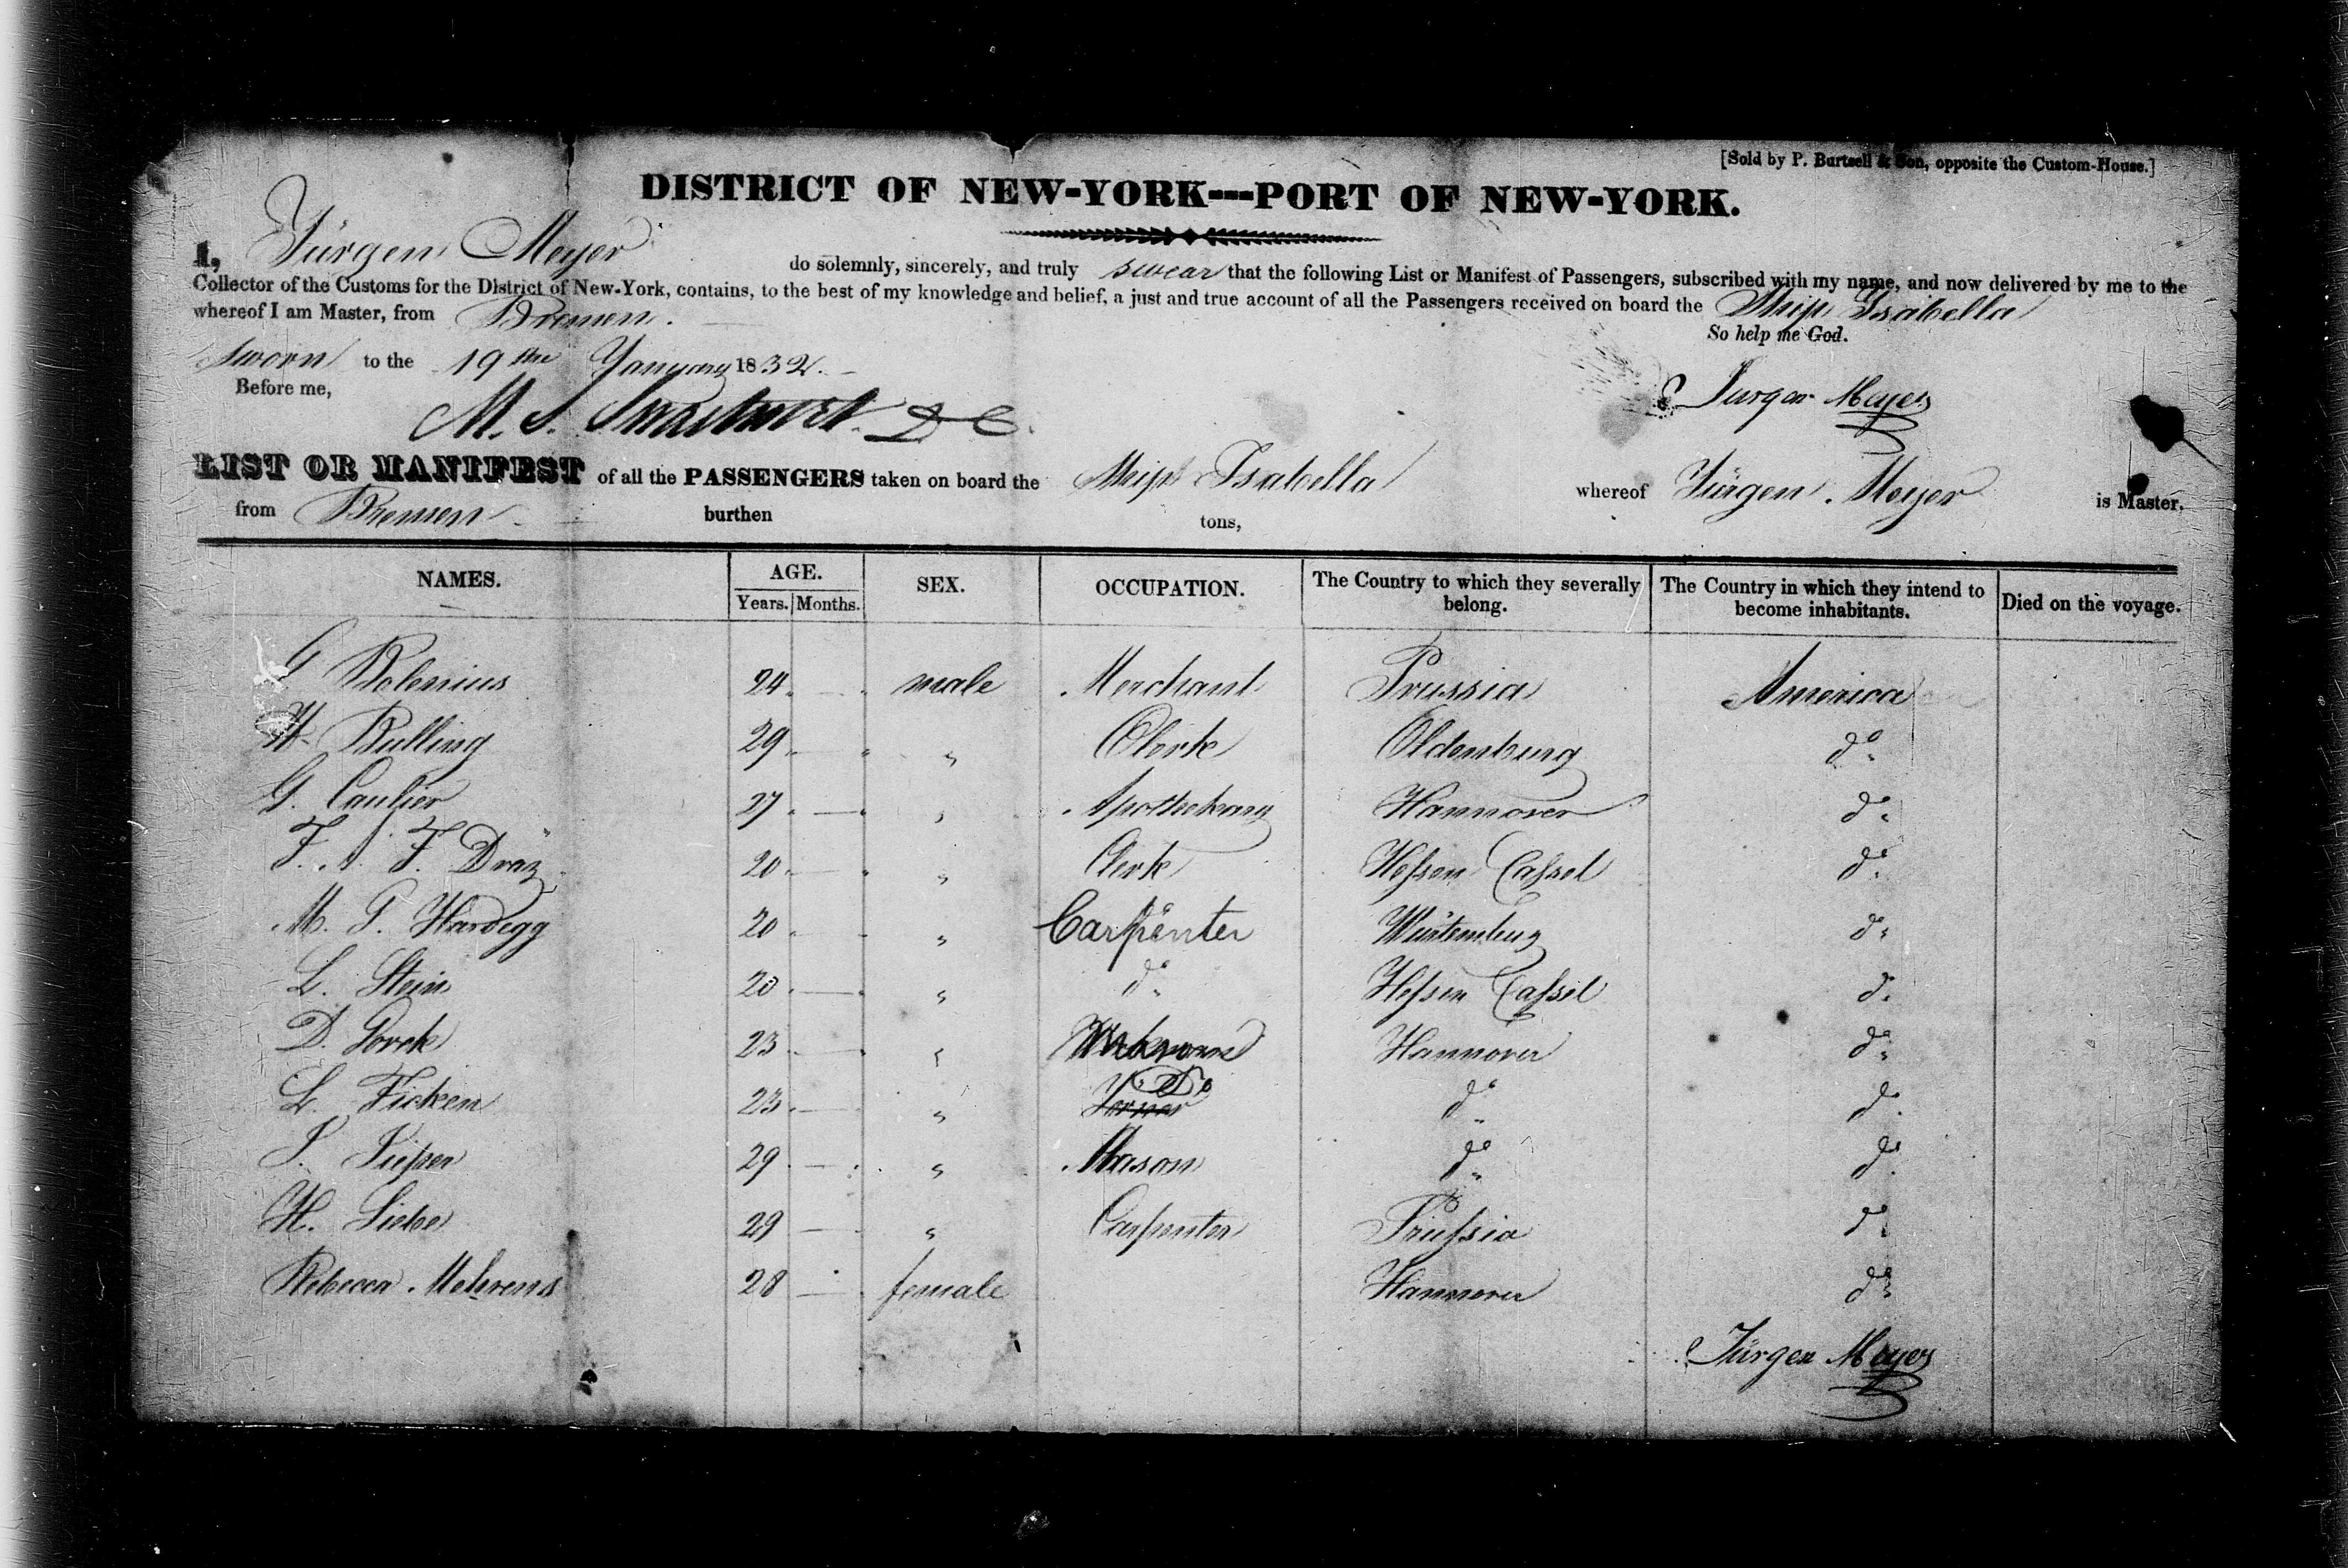 [Sold by P. Burtsell & Son, opposite the Custom-House.]
DISTRICT OF NEW-YORK---PORT OF NEW-YORK.
I, Jürgen Meyer do solemnly, sincerely, and truly swear that the following List or Manifest of Passengers, subscribed with my name, and now delivered by me to the
Collector of the Customs for the District of New-York, contains, to the best of my knowledge and belief, a just and true account of all the Passengers received on board the Ship Isabella
whereof I am Master, from Bremen.
So help me God.
Sworn to the 19th January 1832.
Before me,
Jurgen Meyer
M. S.
LIST OR MANIFEST of all the PASSENGERS taken on board the Ship Isabella whereof Jürgen Meyer is Master,
from Bremen burthen tons,
NAMES. AGE. Years. Months. SEX. OCCUPATION. The Country to which they severally belong. The Country in which they intend to become inhabitants. Died on the voyage.
G Bolenius 24 male Merchant Prussia America
H Bulling 29 " Clerk Oldenburg do
G. 27 " Apothekary Hannover do
F. F. 20 " Clerk Hessen Cassel do
M. Hardegg 20 " Carpenter Würtemburg do
L. Stein 20 " do Hessen Cassel do
D. 23 " Hannover do
L. Ficken 23 " Do do do
29 " Mason do do
H. 29 " Carpenter Prussia do
Rebecca Mehrens 28 female Hannover do
Jürgen Meyer